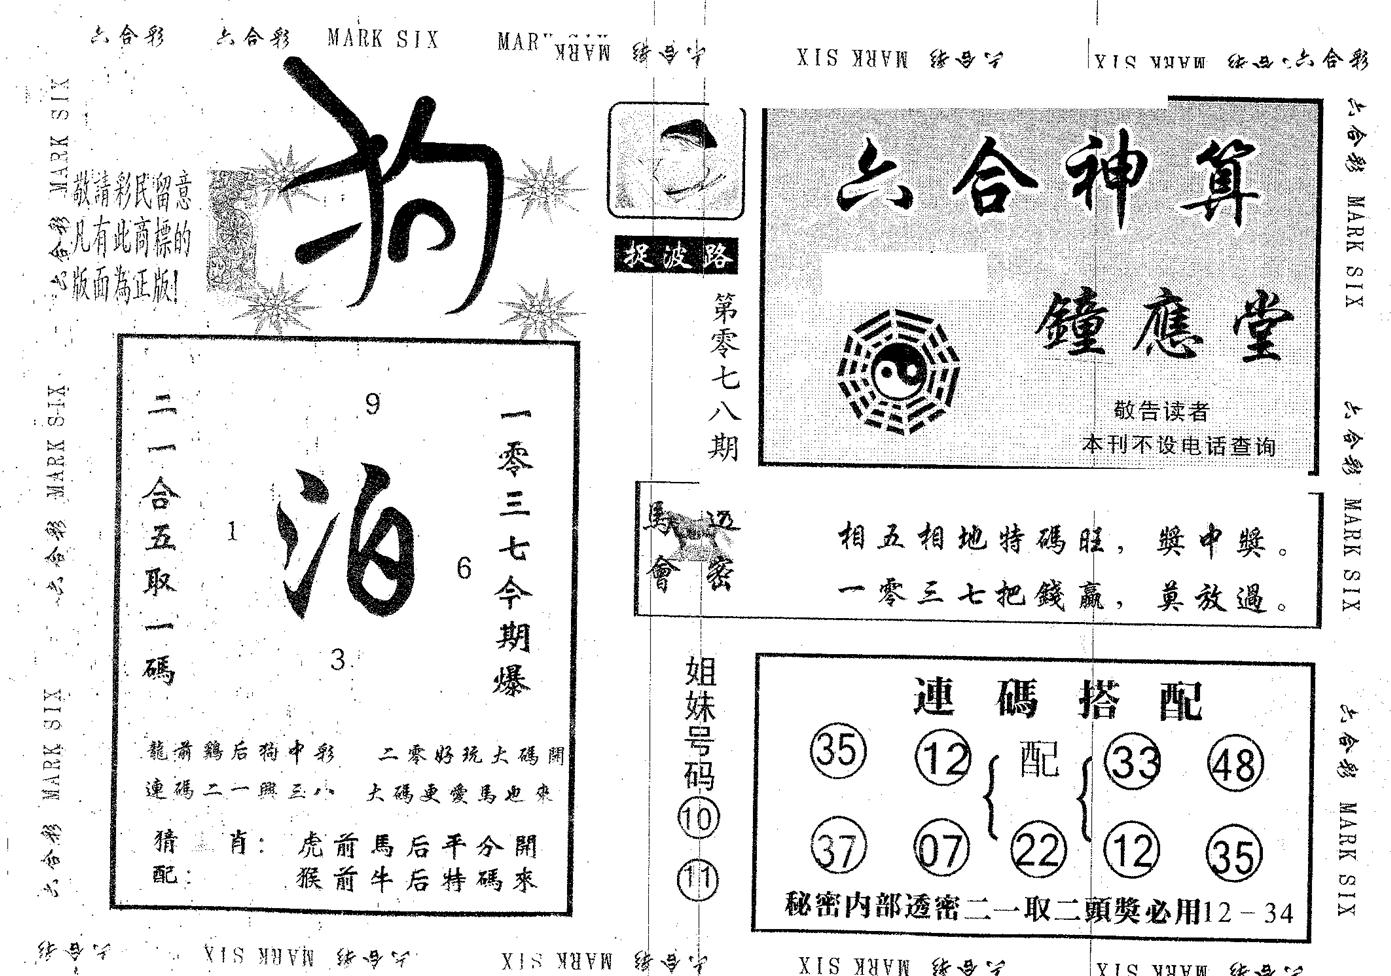 六合彩 六合彩 MARK SIX MARK SIX 六合彩 MARK SIX 六合彩 MARK SIX 六合彩 六合彩
六合彩 MARK SIX 六合彩 MARK SIX 六合彩 MARK SIX
敬請彩民留意
凡有此商標的
版面為正版!
狗
二一合五取一碼
9
1
泊
6
3
一零三七今期爆
龍前鷄后狗中彩 二零好玩大碼開
連碼二一興三八 大碼更愛馬也來
猜 肖: 虎前馬后平分開
配: 猴前牛后特碼來
捉波路
第零七八期
六合神算
鐘應堂
敬告读者
本刊不设电话查询
馬會
透密
相五相地特碼旺,獎中獎。
一零三七把錢贏,莫放過。
姐妹号码
10
11
連碼搭配
35 12 配 33 48
37 07 22 12 35
秘密内部透密二一取二頭獎必用12-34
六合彩 MARK SIX 六合彩 MARK SIX 六合彩 MARK SIX
六合彩 MARK SIX 六合彩 MARK SIX 六合彩 MARK SIX 六合彩 MARK SIX 六合彩